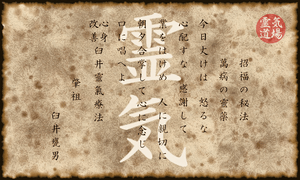 気場
靈道
招福の秘法
萬病の靈薬
今日丈けは 怒るな
心配すな 感謝して
業をはけめ 人に親切に
朝夕合掌して心に念じ
口に唱へよ
心身
改善 臼井靈氣療法
肇祖
臼井甕男
靈氣